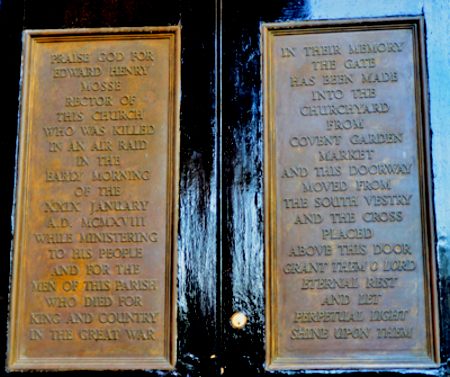 PRAISE GOD FOR
EDWARD HENRY
MOSSE
RECTOR OF
THIS CHURCH
WHO WAS KILLED
IN AN AIR RAID
IN THE
EARLY MORNING
OF THE
XXIX JANUARY
A.D. MCMXVIII
WHILE MINISTERING
TO HIS PEOPLE
AND FOR THE
MEN OF THIS PARISH
WHO DIED FOR
KING AND COUNTRY
IN THE GREAT WAR
IN THEIR MEMORY
THE GATE
HAS BEEN MADE
INTO THE
CHURCHYARD
FROM
COVENT GARDEN
MARKET
AND THIS DOORWAY
MOVED FROM
THE SOUTH VESTRY
AND THE CROSS
PLACED
ABOVE THIS DOOR
GRANT THEM O LORD
ETERNAL REST
AND LET
PERPETUAL LIGHT
SHINE UPON THEM